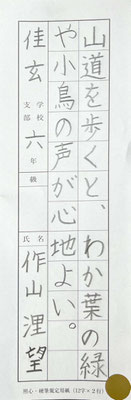 山道を歩くと、わか葉の緑
や小鳥の声が心地よい。
佳玄
学校
支部
六年
級
氏名
作山浬望
硬筆鑑定用紙(12字×2行)